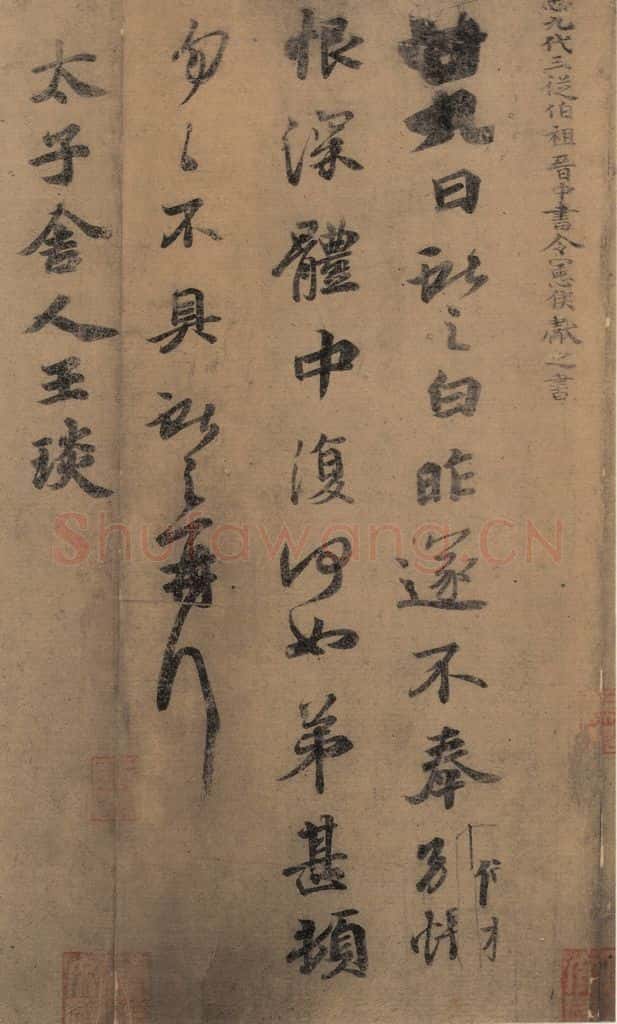 九代三從伯祖晉中書令憲侯獻之書
廿九日獻之白昨遂不奉別悵
恨深體中復何如弟甚頓
匆匆不具獻之再拜
太子舍人王琰
Shufawang.CN